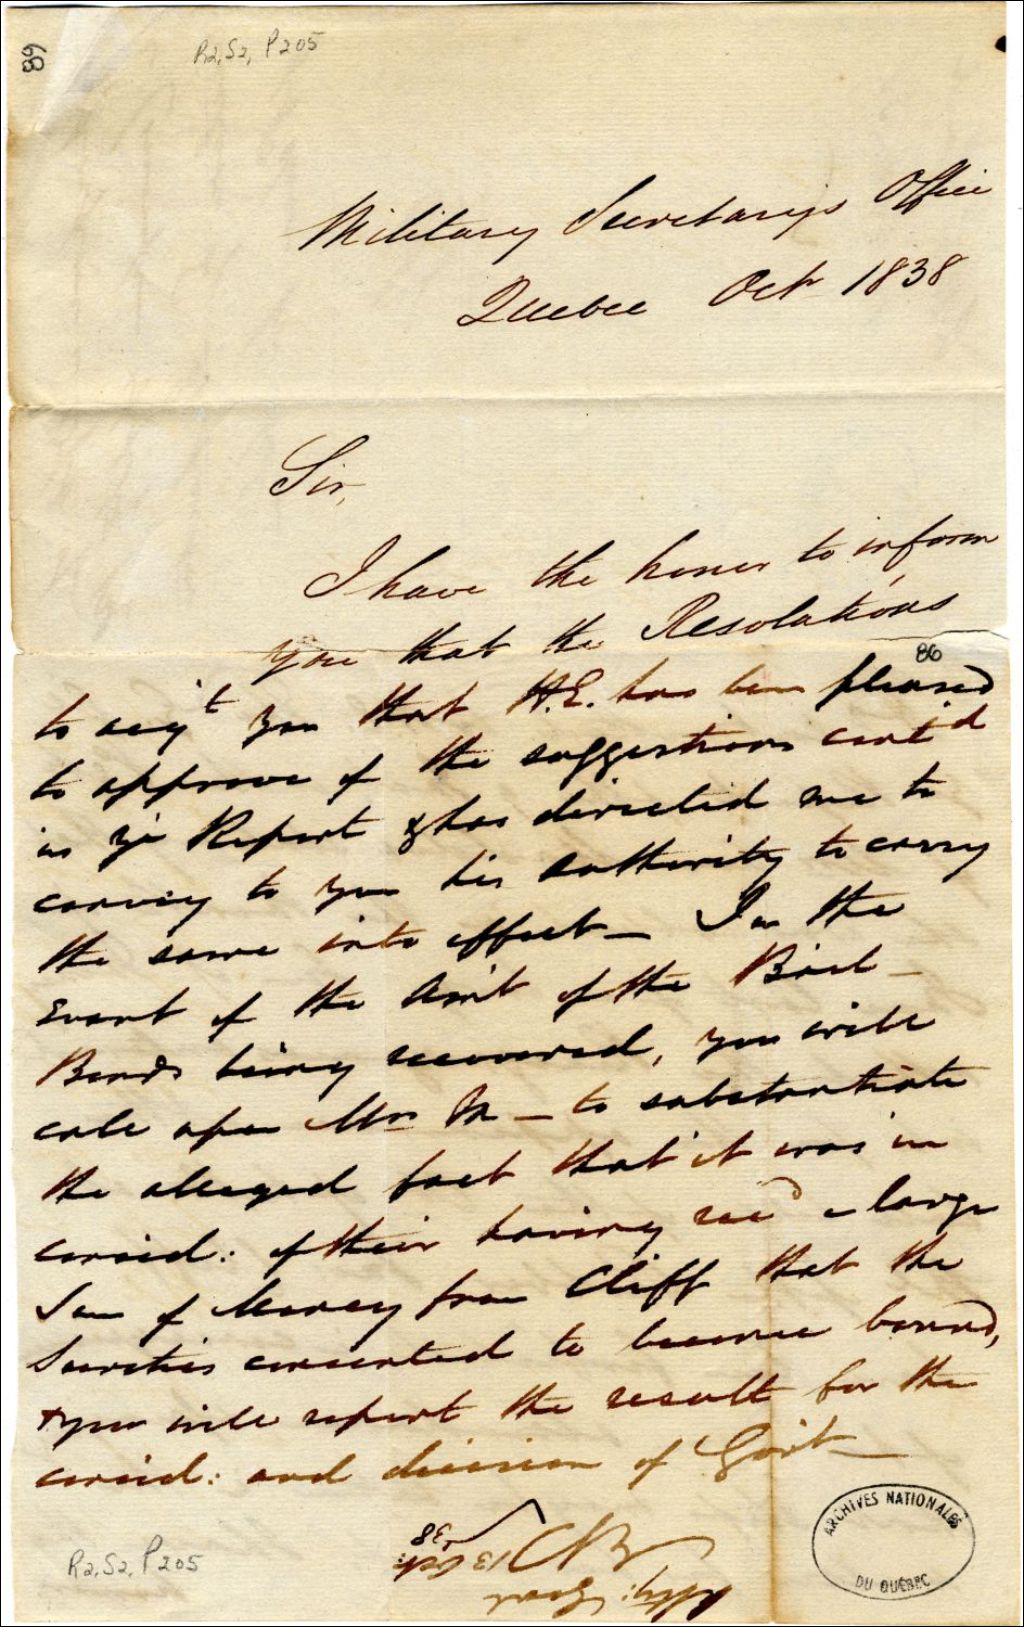 89
R2, S2, P205
Military Secretary's Office
Quebec Octr 1838
Sir,
I have the honor to inform
you that the Resolutions
86
to acqt you that H.E. has been pleased
to approve of the suggestions cont'd
in yr Report & has directed me to
convey to you his authority to carry
the same into effect — In the
Event of the Am't of the Bail-
Bonds being recovered, you will
call upon Mr. M — to substantiate
the alleged fact that it was in
consid: of their having recd a large
Sum of Money from Cliff that the
Sureties consented to become bound,
& you will report the result for the
consid: and decision of Gov't —
ARCHIVES NATIONALES
DU QUÉBEC
R2, S2, P205
13 Oct: 38
Atty: Genl